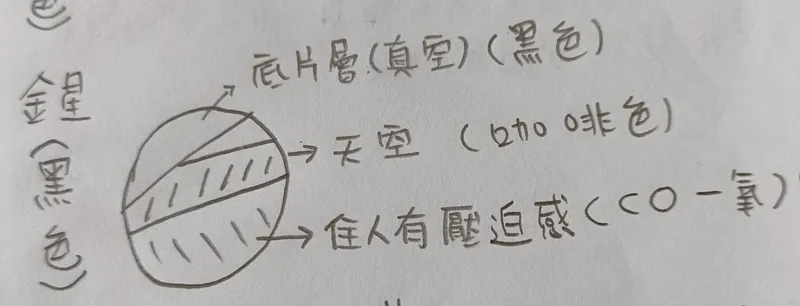 色)
金星(黑色)
底片層(真空)(黑色)
天空 (咖啡色)
住人有壓迫感(CO一氧)